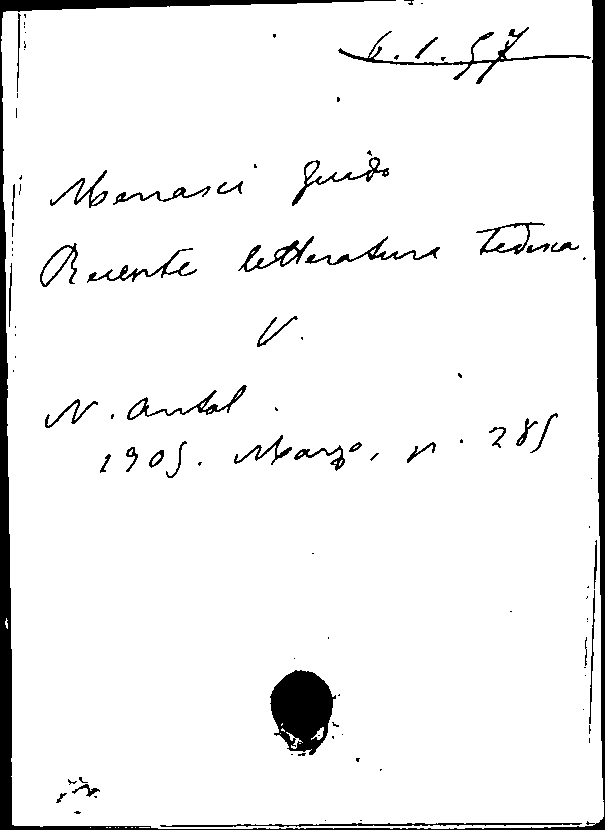 6.1.57
Menasci Guido
Recente letteratura tedesca.
V.
N. Antol.
1905. Marzo, p. 285